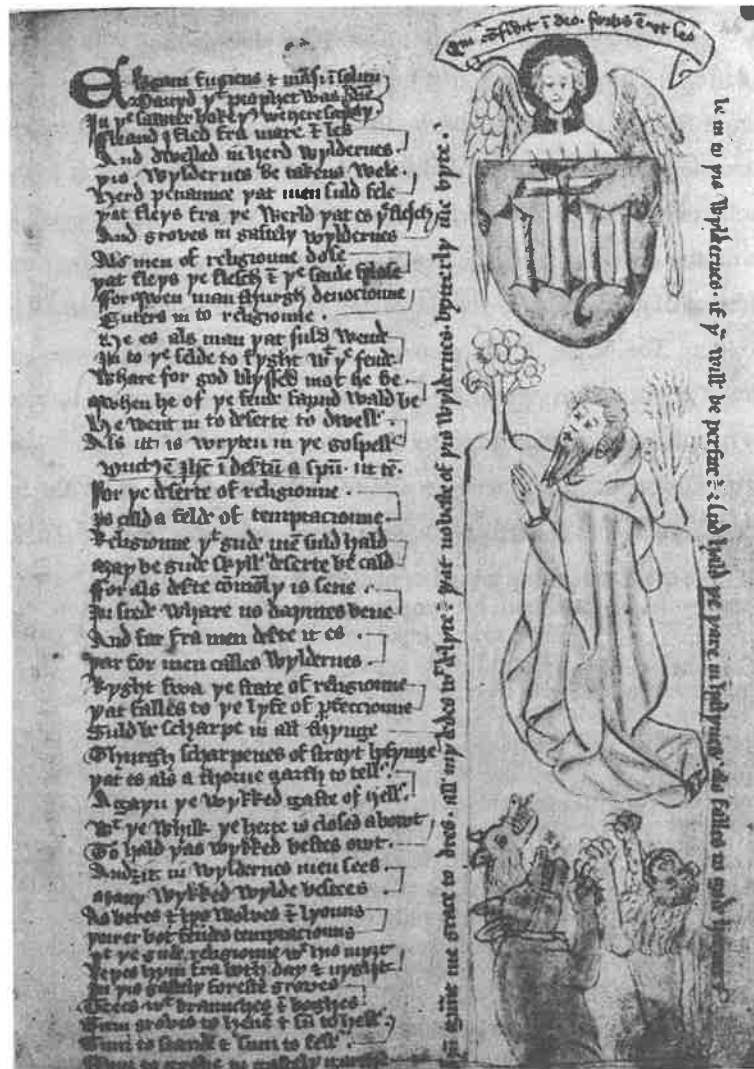 Qui cōfidit ī deo. fortis ē ut leo
Elongaui fugiens & māsi ī solitu
Dauyd yͤ prophet was
In yͤ sawter boke
Fleand I fled fra mare & les
And dwelled in herd wyldernes
yis wyldernes be takens wele
Herd penaunce yat men suld fele
yat fleys fra ye werld yat es yͤ flesch
And groves in gastely wyldernes
Als men of religioune dose
yat fleys ye flesch & yͤ saule
For qwen man thurgh deuocioune
Enters in to religioune
He es als man yat suld wend
In to yͤ felde to fyght wͭ yͤ fende
Whare for god blyssed mot he be
When he of yͤ fende faynd wald be
He went in to deserte to dwell
Als itt is wryten in ye gospell
For ye deserte of religioune
ys cald a felde of temptacioune
Religioune yͭ gude mē suld hald
may be gude skyll deserte be cald
For als deſte cōmōly is sene
In stede whare no dayntes bene
And far fra men deſte it es
yar for men calles wyldernes
Ryght swa ye state of religioune
yat falles to ye lyfe of pfeccioune
Suld be scharpe in all thynge
Thurgh scharpenes of strayt lyfynge
yat es als a thorne garth to tell
Agayn ye wykked gaste of hell
Wͭ ye whilk ye herte is closed abowt
To hald yas wykked bestes owt
And in wyldernes men sees
many wykked wylde bestees
As beres & wolves & lyouns
bot fendes temptacouns
yͭ ye gude religioune wͭ his myght
kepes hym fra both day & nyght
In yis gastely foreste groves
Trees wͭ braunches & boghes
Sum groves to heuē & sū to hell
Sum to stande & sum to fell
Sum to groue in gastely
gūnt me grace to dres. all my dedes wͭ delyte: yat no beste of yis wyldernes. bytterly me byte.
be in to yis wyldernes. if yͧ will be perfite: & hald ye yare in halynes. als falles to